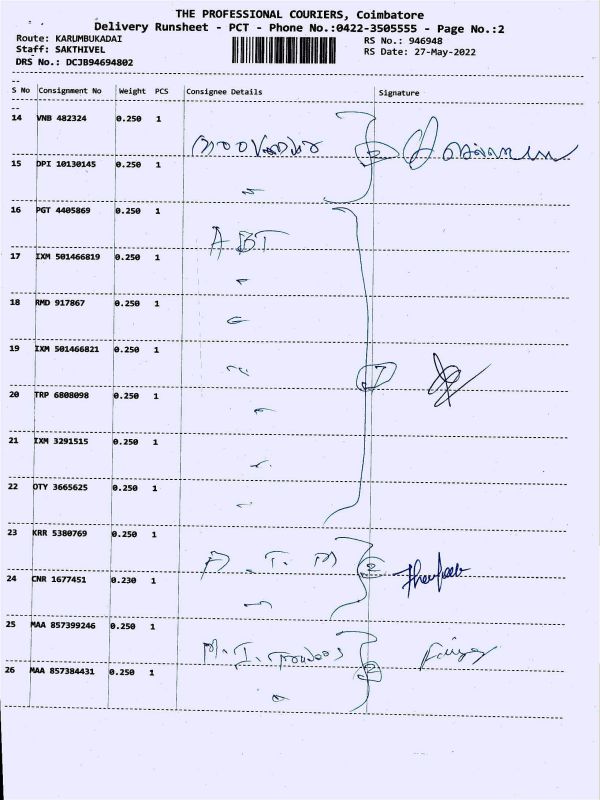 THE PROFESSIONAL COURIERS, Coimbatore
Delivery Runsheet - PCT - Phone No.:0422-3505555 - Page No.:2
Route: KARUMBUKADAI
RS No.: 946948
Staff: SAKTHIVEL
RS Date: 27-May-2022
DRS No.: DCJB94694802
S No Consignment No Weight PCS Consignee Details Signature
14 VNB 482324 0.250 1
15 DPI 10130145 0.250 1 2
16 PGT 4405869 0.250 1
ABT
17 IXM 501466819 0.250 1
18 RMD 917867 0.250 1
19 IXM 501466821 0.250 1
7
20 TRP 6808098 0.250 1
21 IXM 3291515 0.250 1
22 OTY 3665625 0.250 1
23 KRR 5380769 0.250 1
2
24 CNR 1677451 0.230 1
25 MAA 857399246 0.250 1
M. I.
2
26 MAA 857384431 0.250 1